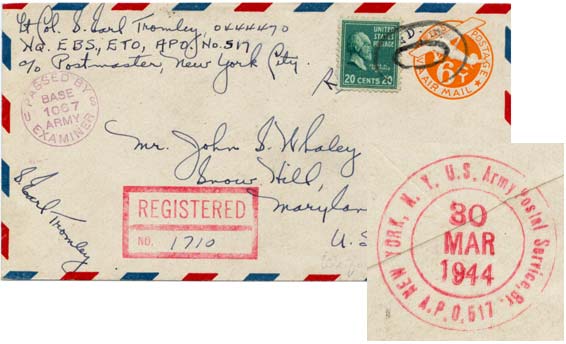 Lt Col. S. Earl Tromley, O444470
Hq. EBS, ETO, APO, No. 517
c/o Postmaster, New York City.
UNITED
STATES
POSTAGE
20 CENTS 20
POSTAGE
6¢
VIA AIR MAIL
PASSED BY
BASE
1067
ARMY
EXAMINER
Mr. John S. Whaley
Snow Hill,
Marylan
U. S
S. Earl Tromley
REGISTERED
NO. 1710
NEW YORK, N. Y. U.S. Army Postal Service, Br.
30
MAR
1944
A.P.O. 517